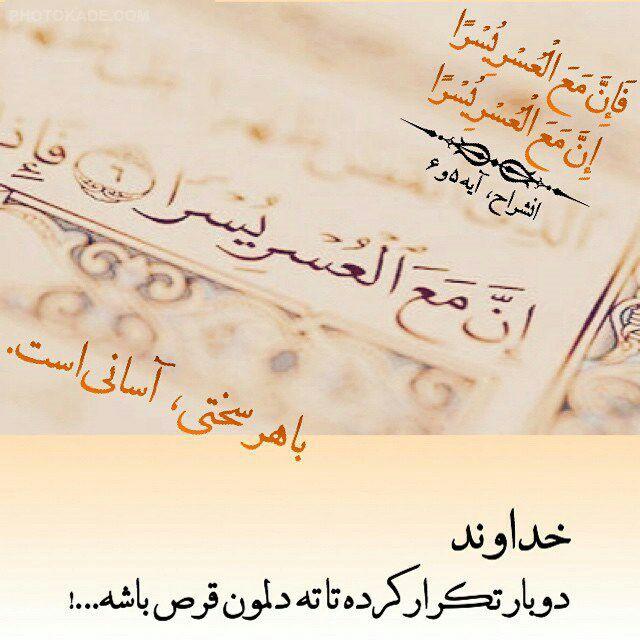 PHOTOKADE.COM
فَإِنَّ مَعَ الْعُسْرِ يُسْرًا
إِنَّ مَعَ الْعُسْرِ يُسْرًا
انشراح، آیه ۵و۶
إِنَّ مَعَ الْعُسْرِ يُسْرًا ٦ فَإِذَا
با هر سختی، آسانی است.
خداوند
دوبار تکرار کرده تا ته دلمون قرص باشه...!